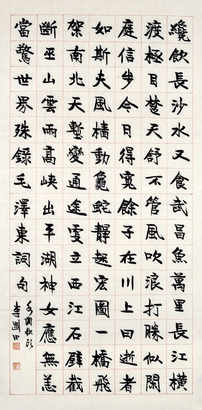 纔飲長沙水又食武昌魚萬里長江橫
渡極目楚天舒不管風吹浪打勝似閒
庭信步今日得寬餘子在川上曰逝者
如斯夫風檣動龜蛇靜起宏圖一橋飛
架南北天塹變通途更立西江石壁截
斷巫山雲雨高峽出平湖神女應無恙
當驚世界殊錄毛澤東詞句